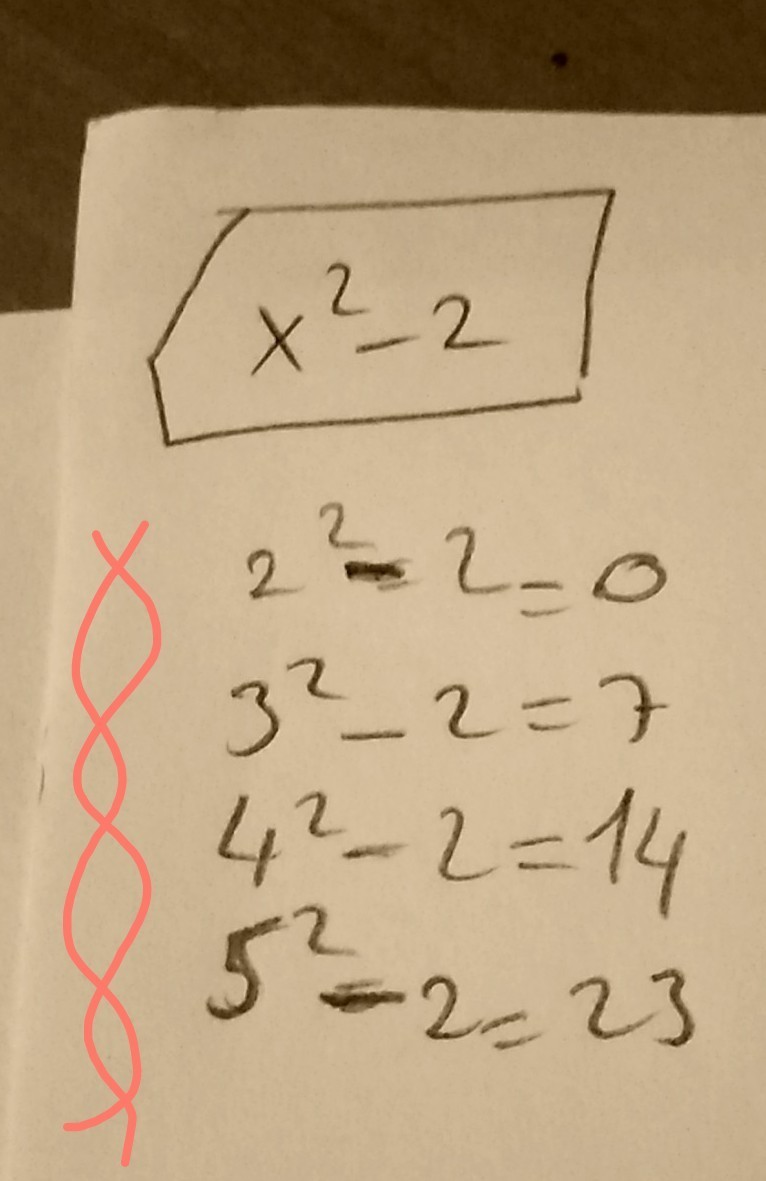 x² - 2
2² - 2 = 0
3² - 2 = 7
4² - 2 = 14
5² - 2 = 23